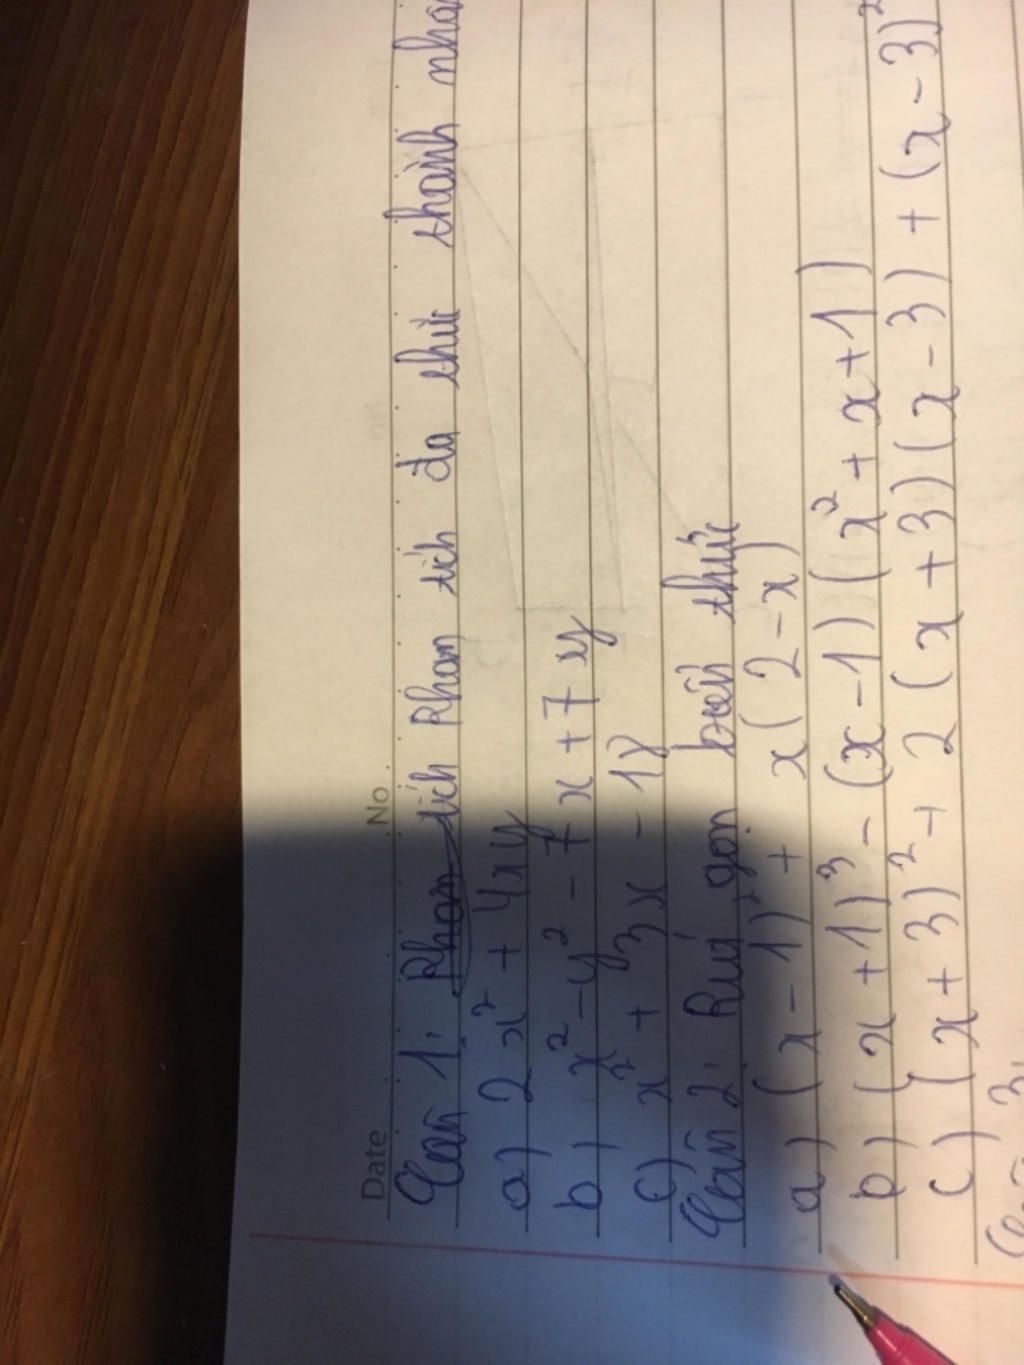 Date No.
Câu 1: Phan tích Phan tích đa thức thành nhâ
a) 2x² + 4xy
b) x² - y² - 7x + 7y
c) x² + 3x - 18
Câu 2: Rút gọn biểu thức
a) (x - 1)² + x(2 - x)
b) (x + 1)³ - (x - 1)(x² + x + 1)
c) (x + 3)² + 2(x + 3)(x - 3) + (x - 3)²
3: